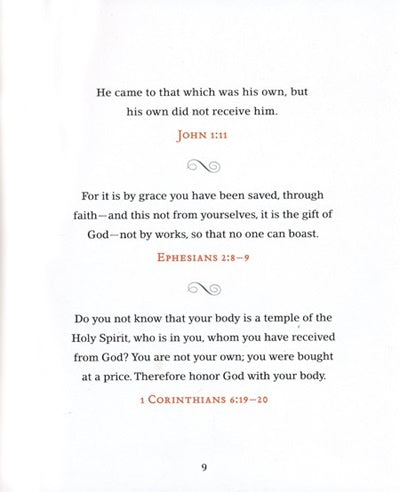 He came to that which was his own, but
his own did not receive him.
John 1:11
For it is by grace you have been saved, through
faith—and this not from yourselves, it is the gift of
God—not by works, so that no one can boast.
Ephesians 2:8–9
Do you not know that your body is a temple of the
Holy Spirit, who is in you, whom you have received
from God? You are not your own; you were bought
at a price. Therefore honor God with your body.
1 Corinthians 6:19–20
9